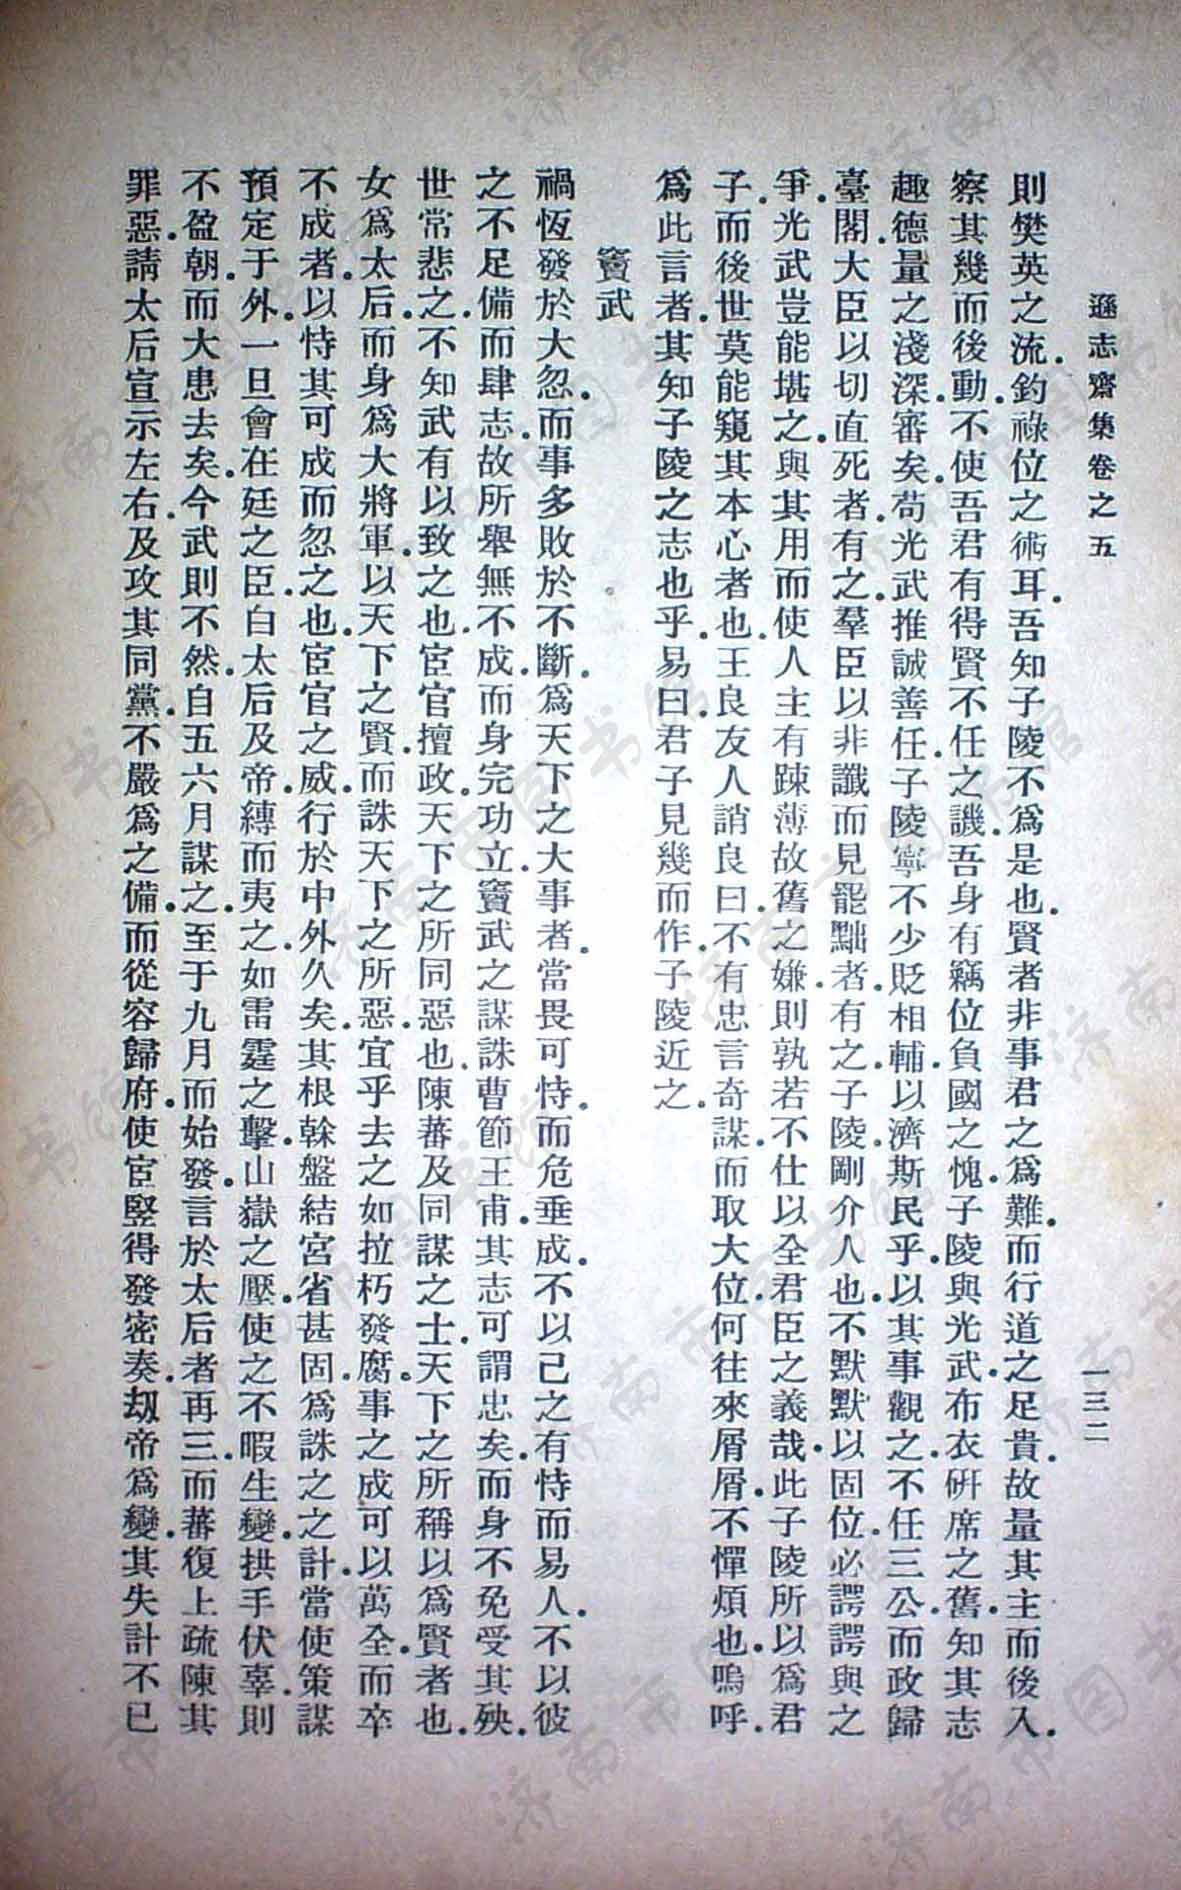 遜志齋集卷之五
一三二
則樊英之流.釣祿位之術耳.吾知子陵不爲是也.賢者非事君之爲難.而行道之足貴.故量其主而後入.
察其幾而後動.不使吾君有得賢不任之譏.吾身有竊位負國之愧.子陵與光武.布衣硏席之舊.知其志
趣.德量之淺深.審矣.苟光武推誠善任.子陵寧不少貶相輔.以濟斯民乎.以其事觀之.不任三公.而政歸
臺閣.大臣以切直死者.有之.羣臣以非讖而見罷黜者.有之.子陵剛介人也.不默默以固位.必諤諤與之
爭.光武豈能堪之.與其用而使人主有踈薄故舊之嫌.則孰若不仕以全君臣之義哉.此子陵所以爲君
子.而後世莫能窺其本心者也.王良友人誚良曰.不有忠言奇謀.而取大位.何往來屑屑.不憚煩也.嗚呼.
爲此言者.其知子陵之志也乎.易曰.君子見幾而作.子陵近之.
竇武
禍恆發於大忽.而事多敗於不斷.爲天下之大事者.當畏可恃而危垂成.不以己之有恃而易人.不以彼
之不足備而肆志.故所舉無不成.而身完功立.竇武之謀誅曹節王甫.其志可謂忠矣.而身不免受其殃.
世常悲之.不知武有以致之也.宦官擅政.天下之所同惡也.陳蕃及同謀之士.天下之所稱以爲賢者也.
女爲太后.而身爲大將軍.以天下之賢.而誅天下之所惡.宜乎去之如拉朽發腐.事之成可以萬全.而卒
不成者.以恃其可成而忽之也.宦官之威.行於中外久矣.其根榦盤結宮省甚固.爲誅之之計.當使策謀
預定于外.一旦會在廷之臣.白太后及帝.縛而夷之.如雷霆之擊.山嶽之壓.使之不暇生變.拱手伏辜.則
不盈朝.而大患去矣.今武則不然.自五六月謀之.至于九月而始發.言於太后者再三.而蕃復上疏陳其
罪惡.請太后宣示左右.及攻其同黨.不嚴爲之備.而從容歸府.使宦竪得發密奏.刼帝爲變.其失計不已